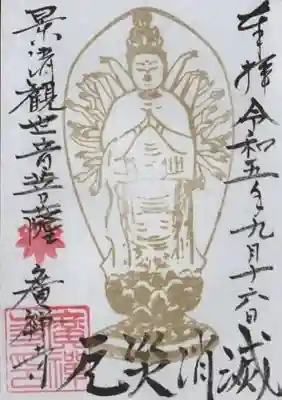 奉拝 令和五年九月十六日
景清観世音菩薩 廣禅寺
厄災消滅